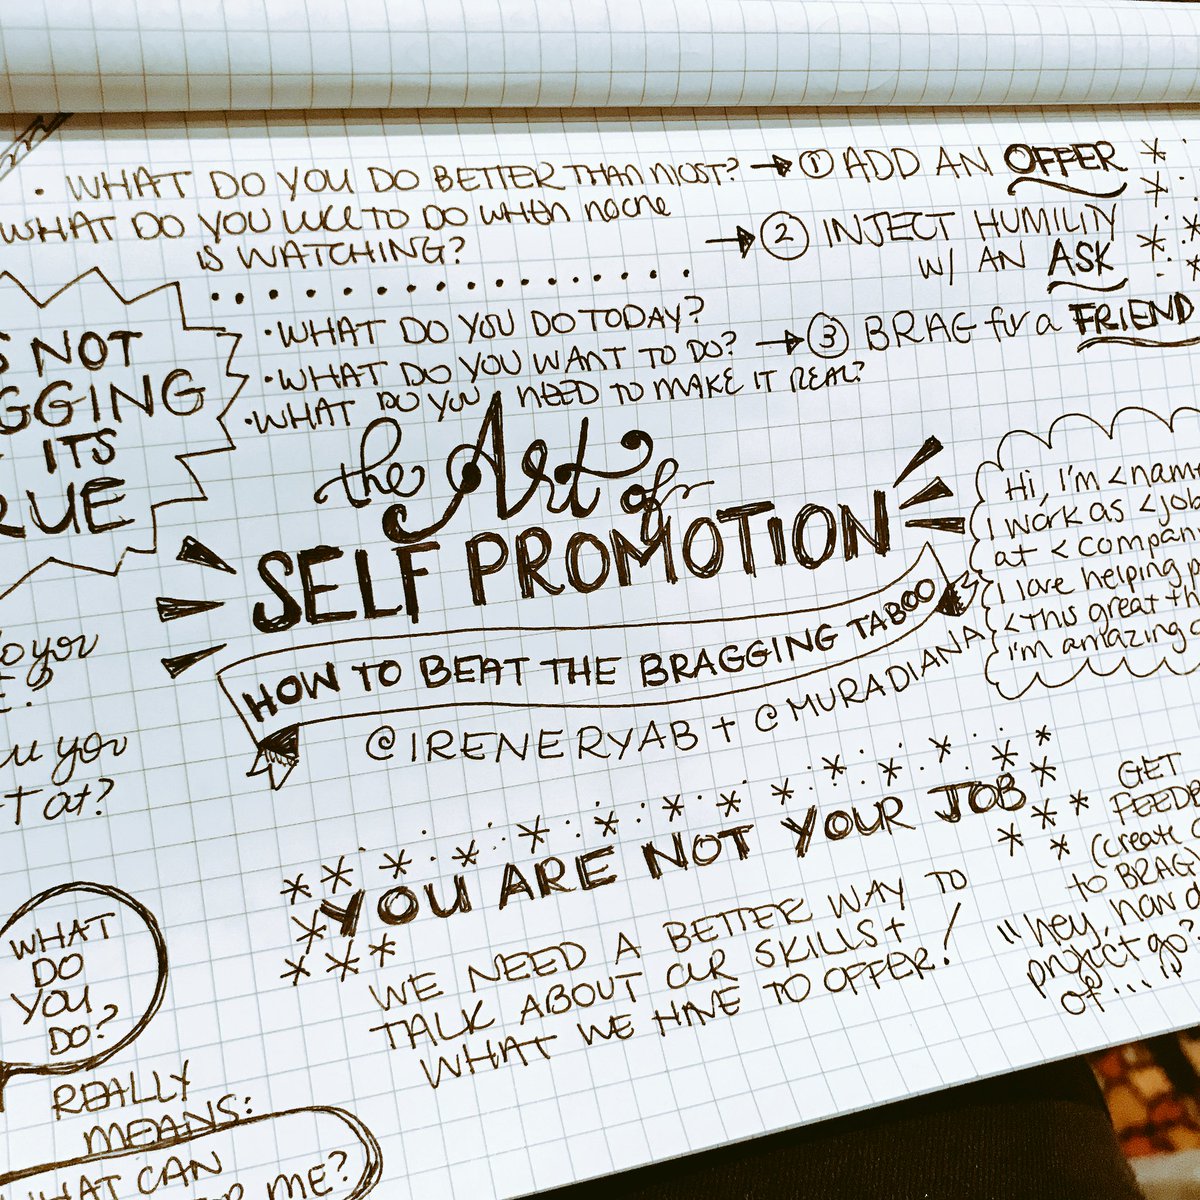 • WHAT DO YOU DO BETTER THAN MOST?
WHAT DO YOU LIKE TO DO WHEN NOONE
IS WATCHING?
→ ① ADD AN OFFER
→ ② INJECT HUMILITY
W/ AN ASK
→ ③ BRAG for a FRIEND
• WHAT DO YOU DO TODAY?
• WHAT DO YOU WANT TO DO?
• WHAT DO YOU NEED TO MAKE IT REAL?
NOT
GGING
ITS
RUE
the Art of
SELF PROMOTION
HOW TO BEAT THE BRAGGING TABOO
@IRENERYAB + @MURADIANA
Hi, I'm <nam
I work as <jo
at <compan
I love helping p
<this great th
I'm amazing
you
you
at?
YOU ARE NOT YOUR JOB
WE NEED A BETTER WAY TO
TALK ABOUT OUR SKILLS +
WHAT WE HAVE TO OFFER!
GET
FEEDB
(create
to BRAG)
"hey, how d
project go?
of...
WHAT
DO
YOU
DO?
REALLY
MEANS:
WHAT CAN
ME?